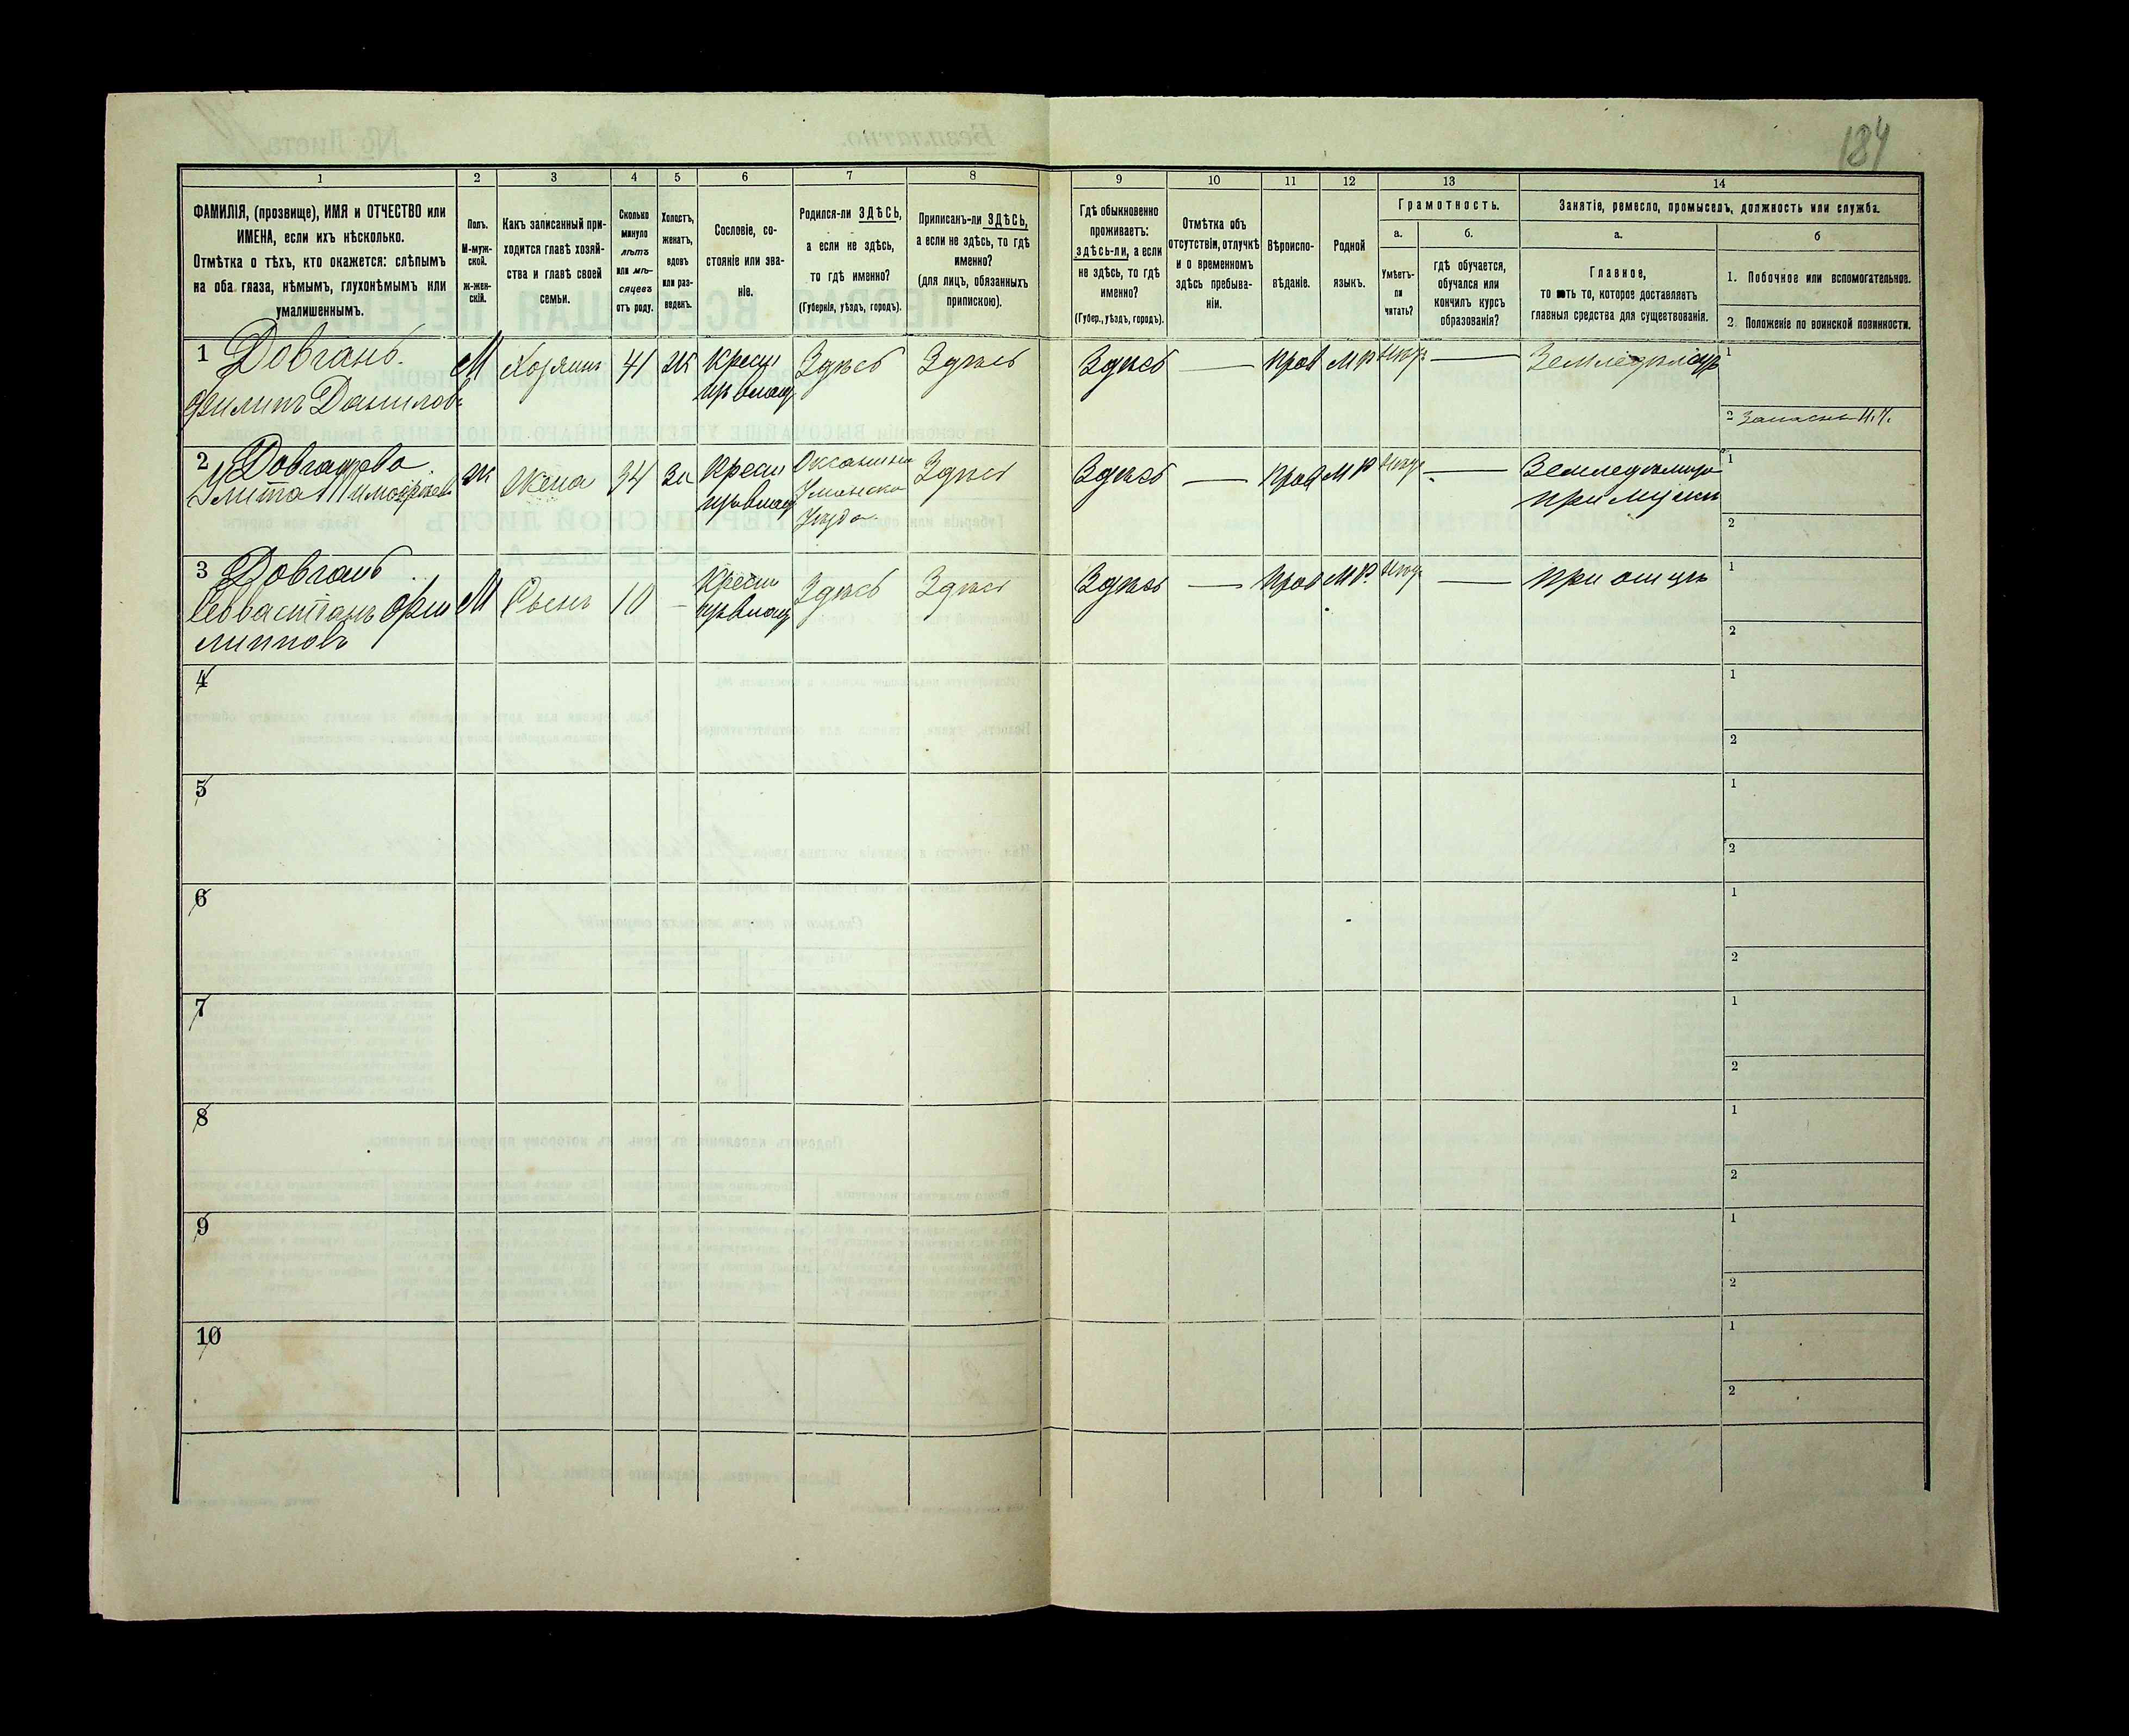 184
1
2
3
4
5
6
7
8
9
10
11
12
13
14
ФАМИЛІЯ, (прозвище), ИМЯ и ОТЧЕСТВО или
ИМЕНА, если ихъ нѣсколько.
Отмѣтка о тѣхъ, кто окажется: слѣпымъ
на оба глаза, нѣмымъ, глухонѣмымъ или
умалишеннымъ.
Полъ.
М-муж-
ской.
Ж-жен-
скій.
Какъ записанный при-
ходится главѣ хозяй-
ства и главѣ своей
семьи.
Сколько
минуло
лѣтъ
или мѣ-
сяцевъ
отъ роду.
Холостъ,
женатъ,
вдовъ
или раз-
веденъ.
Сословіе, со-
стояніе или зва-
ніе.
Родился-ли ЗДѢСЬ,
а если не здѣсь,
то гдѣ именно?
(Губернія, уѣздъ, городъ).
Приписанъ-ли ЗДѢСЬ,
а если не здѣсь, то гдѣ
именно?
(для лицъ, обязанныхъ
припискою).
Гдѣ обыкновенно
проживаетъ:
здѣсь-ли, а если
не здѣсь, то гдѣ
именно?
(Губер., уѣздъ, городъ).
Отмѣтка объ
отсутствіи, отлучкѣ
и о временномъ
здѣсь пребыва-
ніи.
Вѣроиспо-
вѣданіе.
Родной
языкъ.
Грамотность.
а.
Умѣетъ-
ли
читать?
б.
гдѣ обучается,
обучался или
кончилъ курсъ
образованія?
Занятіе, ремесло, промыселъ, должность или служба.
а.
Главное,
то есть то, которое доставляетъ
главныя средства для существованія.
б
1. Побочное или вспомогательное.
2. Положеніе по воинской повинности.
1 Довгань
Филипъ Данилов
М
Хозяинъ
41
Ж
Крест
из влад
Здѣсь
Здѣсь
Здѣсь
—
Прав
М Р
—
Земледѣлецъ
1
2
2
Улита
Ж
Жена
34
За
Крест
из влад
Уманско
Уѣзда
Здѣсь
Здѣсь
—
Прав
М Р
—
при мужи
1
2
3 Довгань
Севастіанъ Фи
липповъ
М
Сынъ
10
—
Крест
из влад
Здѣсь
Здѣсь
Здѣсь
—
Прав
М Р.
—
при отцѣ
1
2
4
1
2
5
1
2
6
1
2
7
1
2
8
1
2
9
1
2
10
1
2